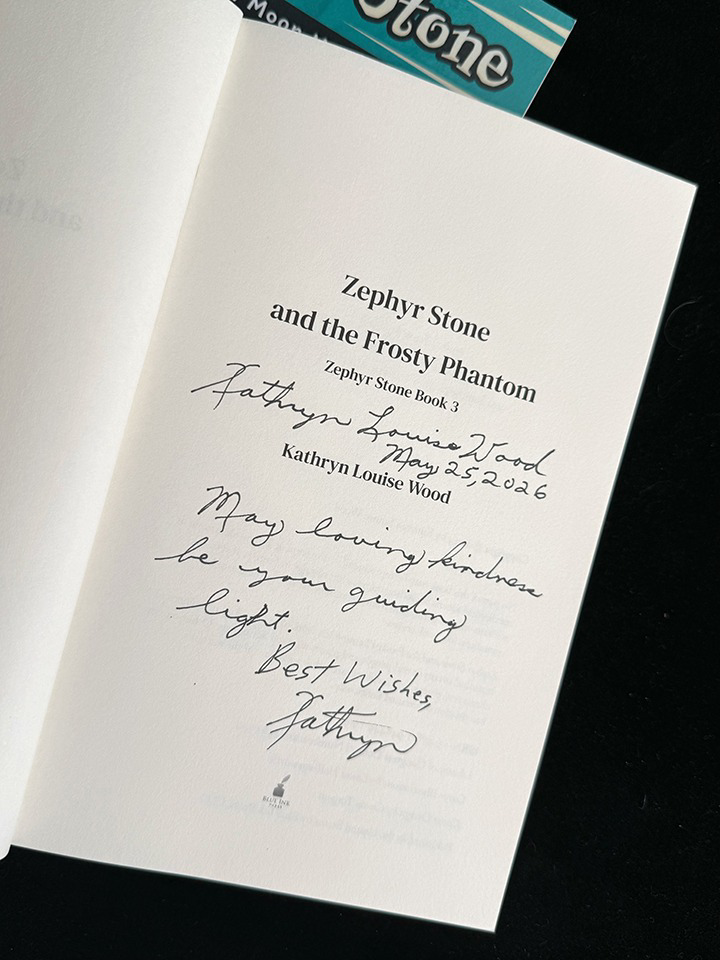 Moon
Stone
Zephyr Stone
and the Frosty Phantom
Zephyr Stone Book 3
Kathryn Louise Wood
May 25, 2026
Kathryn Louise Wood
May loving kindness
be your guiding
light.
Best Wishes,
Kathryn
BLUE INK
PRESS